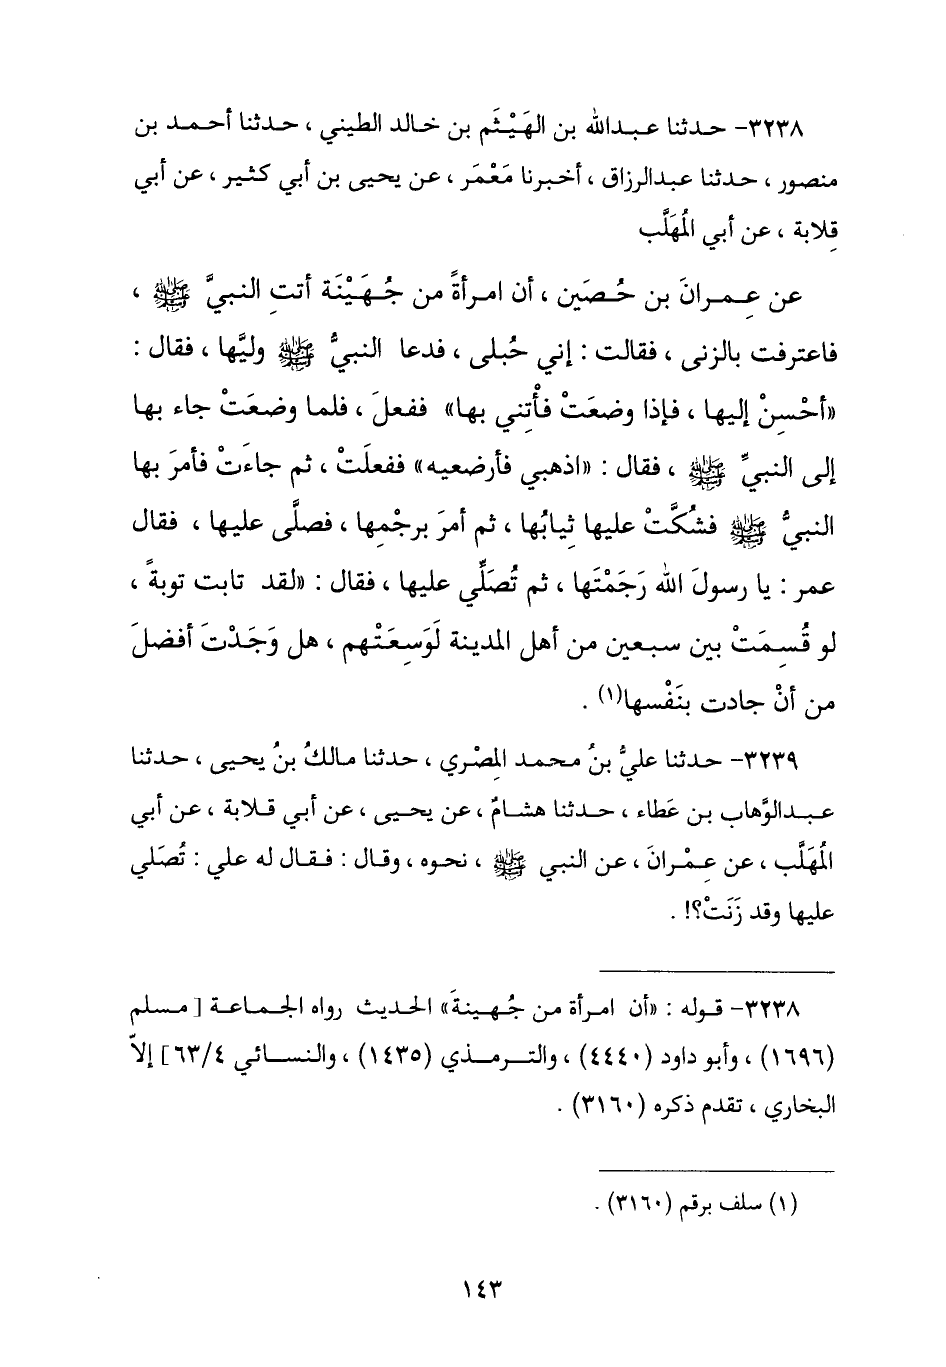 ٣٢٣٨- حدثنا عبدالله بن الهَيْثَم بن خالد الطيني ، حدثنا أحمد بن
منصور ، حدثنا عبدالرزاق ، أخبرنا مَعْمَر ، عن يحيى بن أبي كثير ، عن أبي
قِلابة ، عن أبي المُهَلَّب
عن عِمرانَ بن حُصَين ، أن امرأةً من جُهَيْنَة أتتِ النبيَّ ﷺ ،
فاعترفت بالزنى ، فقالت : إني حُبلى ، فدعا النبيُّ ﷺ وليَّها ، فقال :
«أحْسِنْ إليها ، فإذا وضعَتْ فأْتني بها» ففعلَ ، فلما وضعَتْ جاء بها
إلى النبيِّ ﷺ ، فقال : «اذهبي فأرضعيه» ففعلَتْ ، ثم جاءَتْ فأمرَ بها
النبيُّ ﷺ فشُكَّتْ عليها ثيابُها ، ثم أمرَ برجْمِها ، فصلَّى عليها ، فقال
عمر : يا رسولَ الله رَجَمْتَها ، ثم تُصَلِّي عليها ، فقال : «لقد تابت توبةً ،
لو قُسِمَتْ بين سبعين من أهل المدينة لَوَسِعَتْهم ، هل وَجَدْتَ أفضلَ
من أنْ جادت بنَفْسها(١) .
٣٢٣٩- حدثنا عليُّ بنُ محمد المِصْري ، حدثنا مالكُ بنُ يحيى ، حدثنا
عبدالوَّهاب بن عَطاء ، حدثنا هشامٌ ، عن يحيى ، عن أبي قلابة ، عن أبي
المُهَلَّب ، عن عِمْرانَ ، عن النبي ﷺ ، نحوه ، وقال : فقال له علي : تُصَلي
عليها وقد زَنَتْ؟! .
٣٢٣٨- قوله : «أن امرأة من جُهينةَ» الحديث رواه الجماعة [ مسلم
(١٦٩٦) ، وأبو داود (٤٤٤٠) ، والترمذي (١٤٣٥) ، والنسائي ٦٣/٤] إلاّ
البخاري ، تقدم ذكره (٣١٦٠) .
(١) سلف برقم (٣١٦٠) .
١٤٣